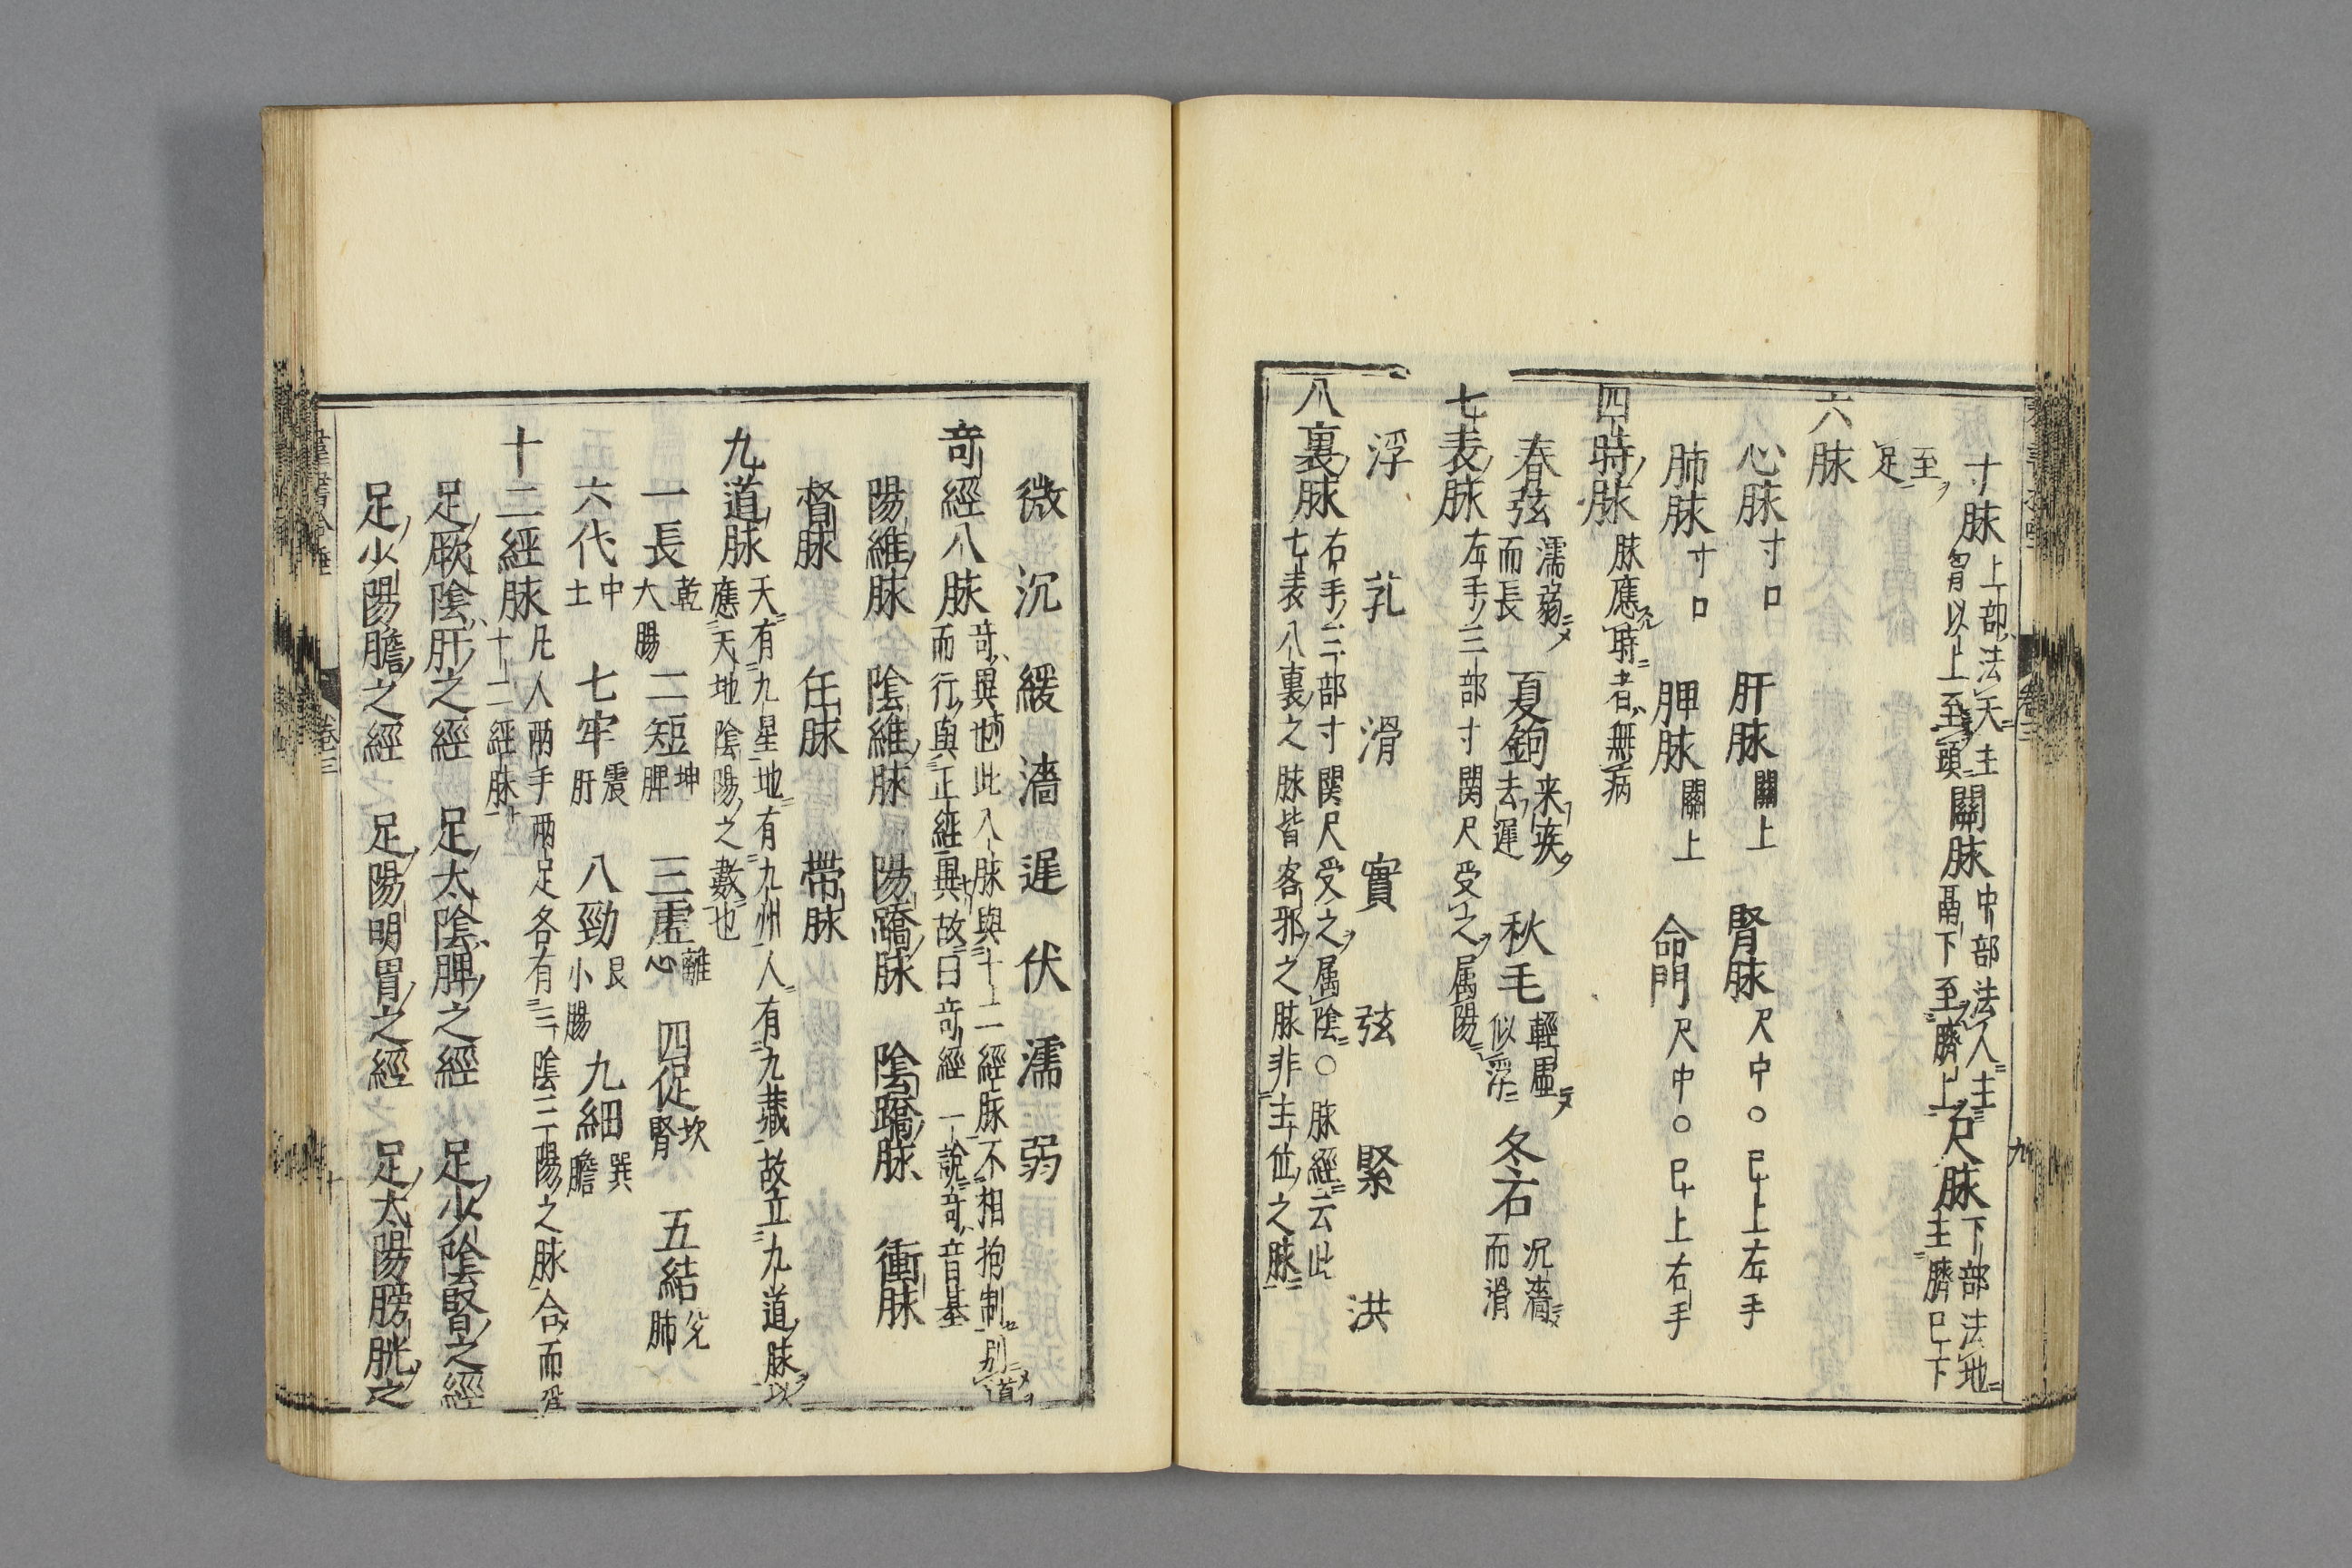 寸脉 上部法天主胷以上至頭 關脉 中部法人主鬲下至臍上 尺脉 下部法地主臍已下
至足
六脉
心脉 寸口 肝脉 關上 腎脉 尺中○已上左手
肺脉 寸口 脾脉 關上 命門 尺中○已上右手
四時脉 脉應時者無病
春弦 濡弱而長 夏鉤 来疾去遅 秋毛 輕虚似浮 冬石 沉濇而滑
七表脉 左手三部寸関尺受之属陽
浮 芤 滑 實 弦 緊 洪
八裏脉 右手三部寸関尺受之属陰○脉經云此七表八裏之脉皆客邪之脉非主位之脉
微 沉 緩 濇 遅 伏 濡 弱
奇經八脉 奇異也此八脉與十二經脉不相拘制別道而行與正經異故曰奇經一說奇音基
陽維脉 陰維脉 陽蹻脉 陰蹻脉 衝脉
督脉 任脉 帶脉
九道脉 天有九星地有九州人有九藏故立九道脉以應天地陰陽之數也
一長 乾大腸 二短 坤脾 三虚 離心 四促 坎腎 五結 兌肺
六代 中土 七牢 震肝 八動 艮小腸 九細 巽膽
十二經脉 凡人兩手兩足各有三陰三陽之脉合而爲十二經脉
足厥陰肝之經 足太陰脾之經 足少陰腎之經
足少陽膽之經 足陽明胃之經 足太陽膀胱之
卷三
九
卷三
十